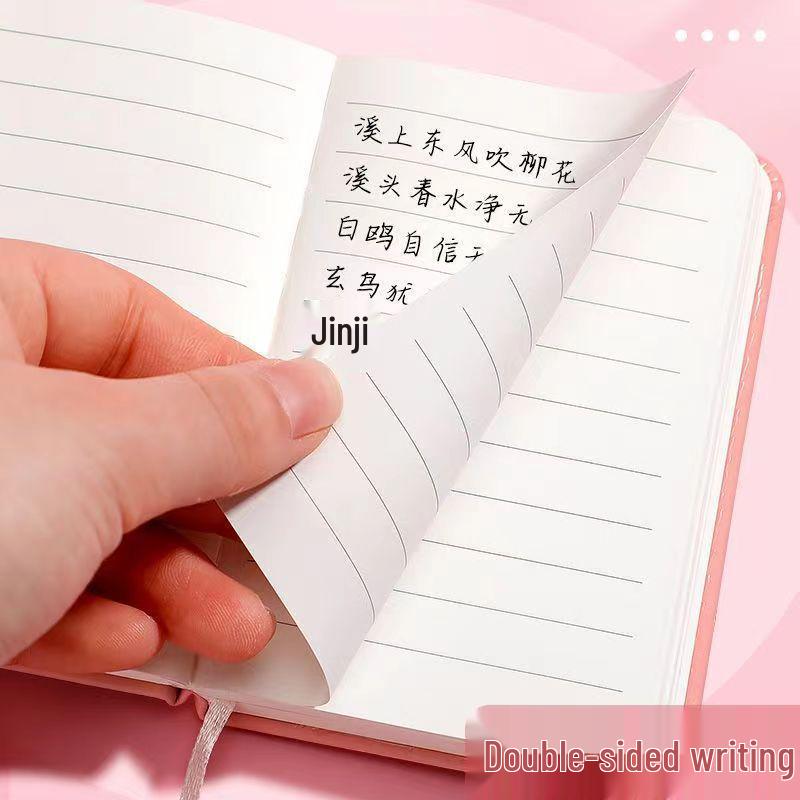 溪上东风吹柳花
溪头春水净无
白鸥自信无
玄鸟犹
Jinji
Double-sided writing